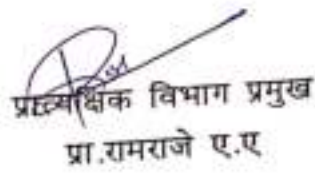 प्रात्यक्षिक विभाग प्रमुख
प्रा.रामराजे ए.ए